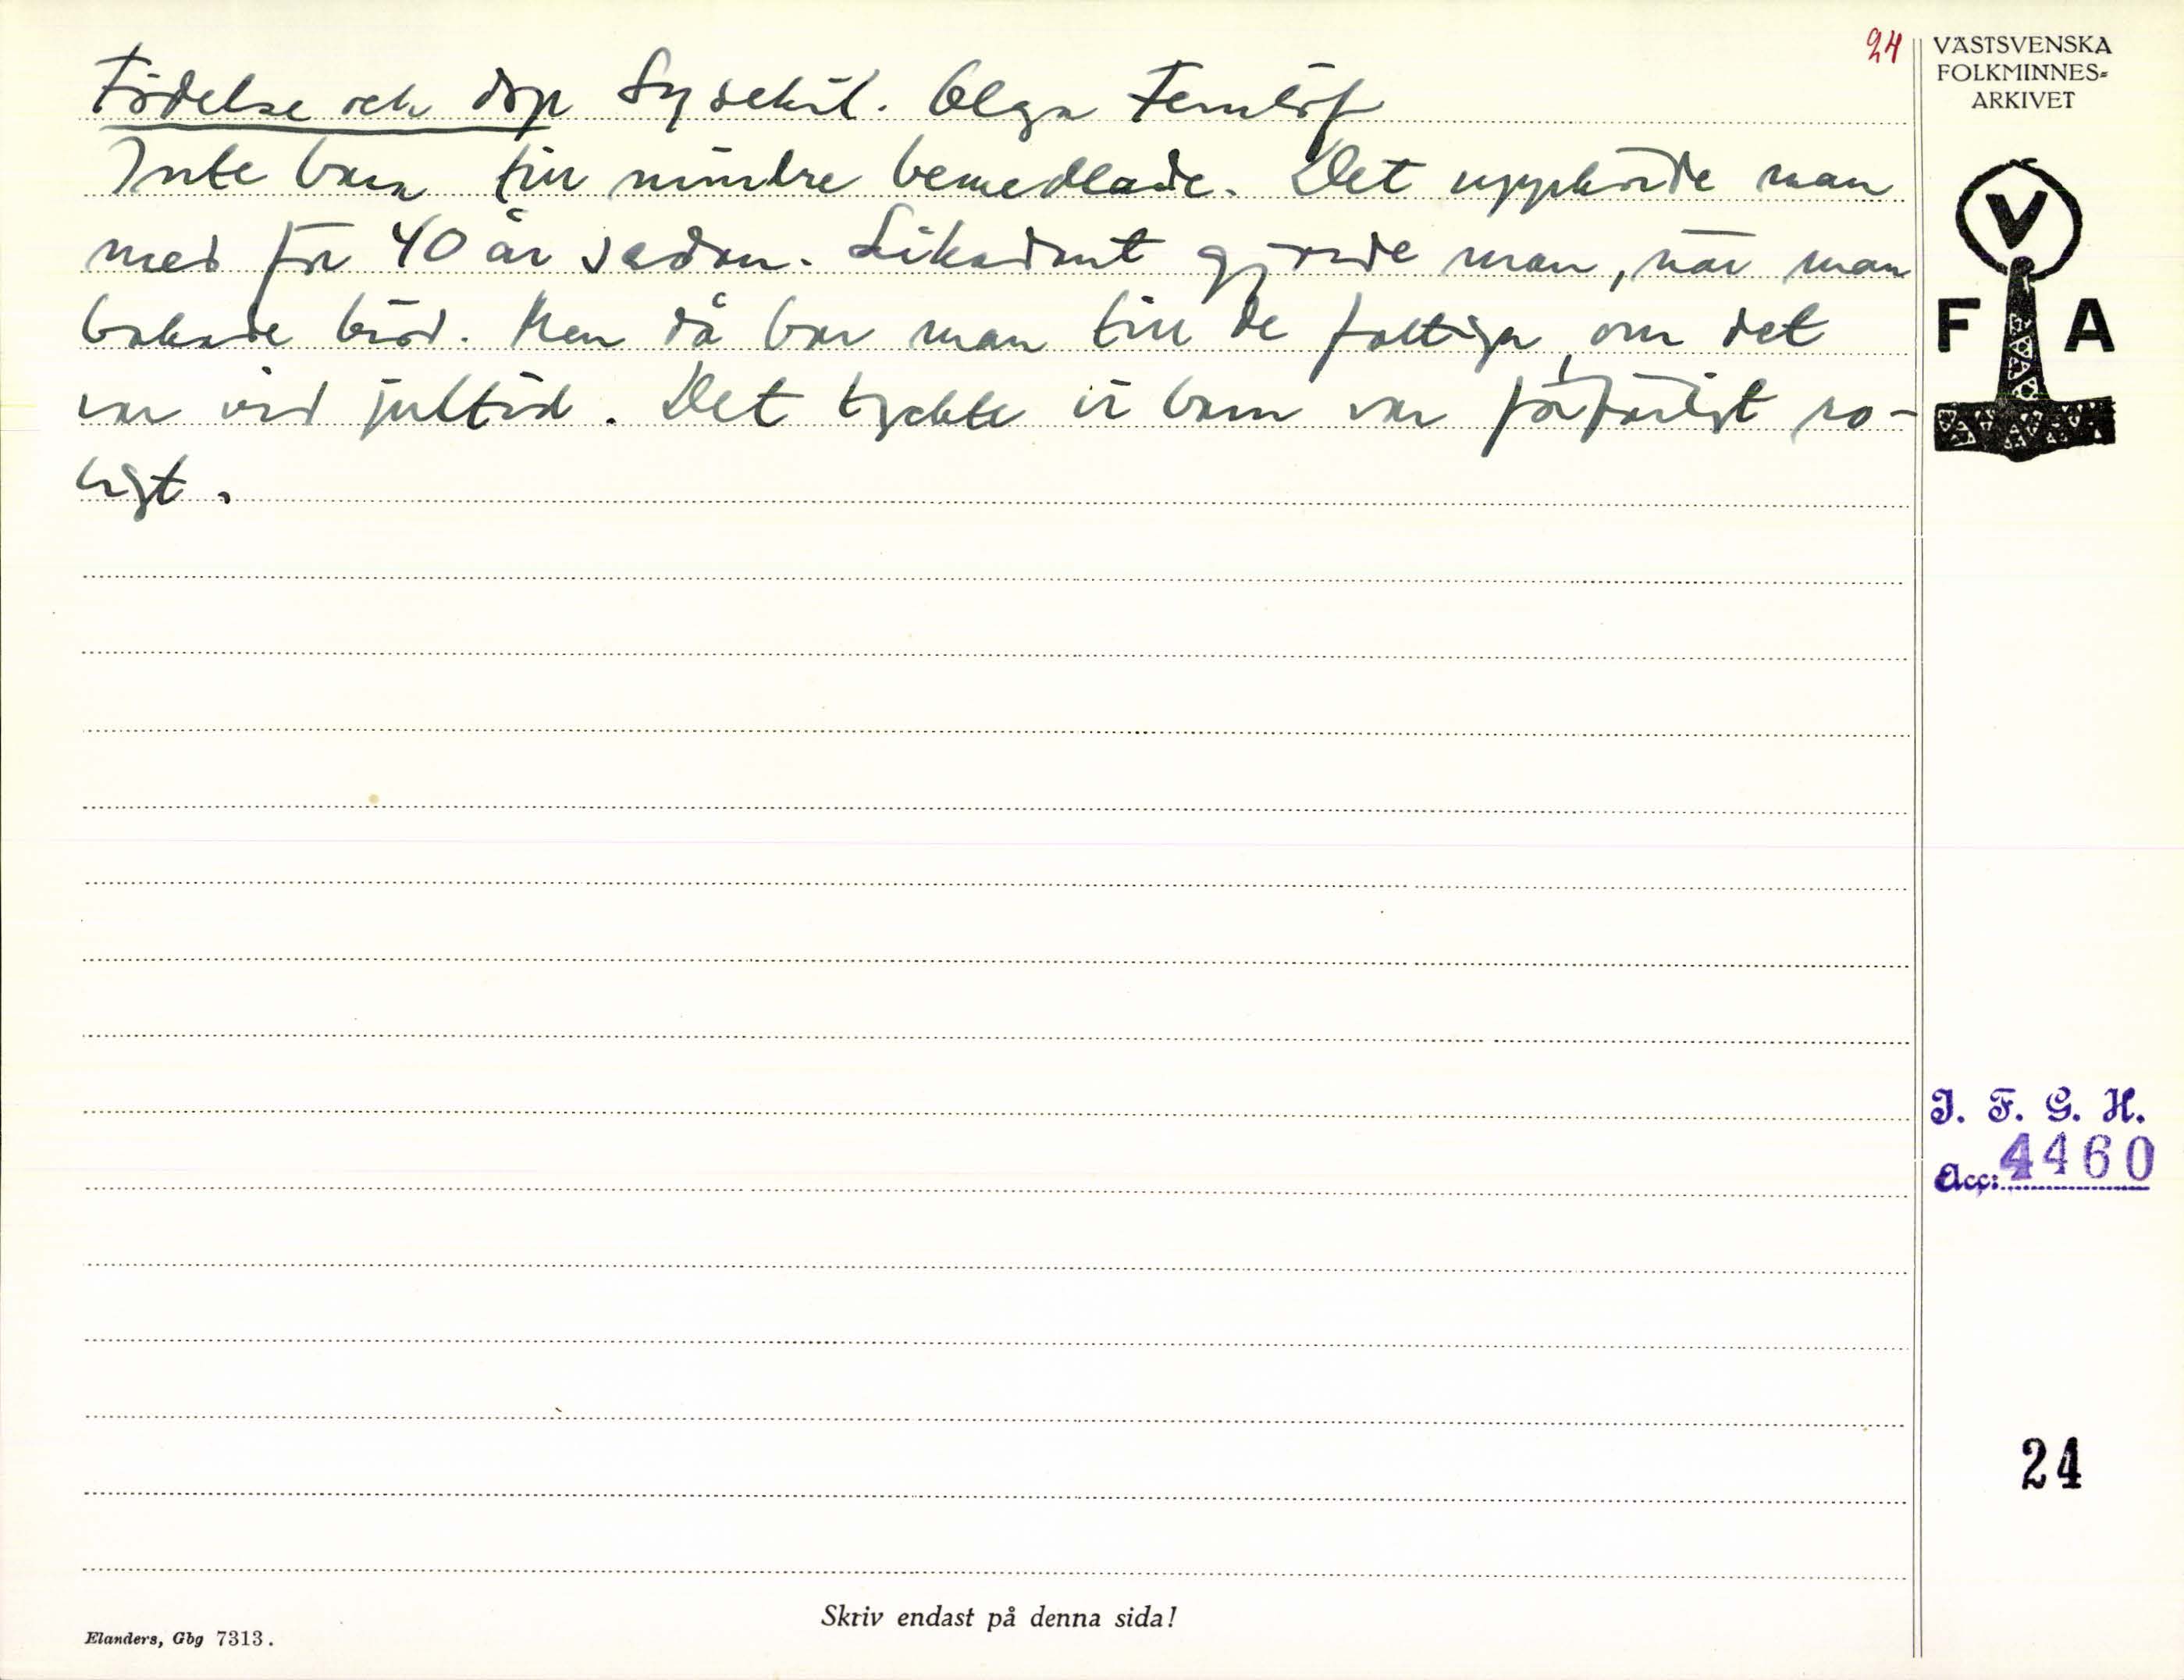 24
VÄSTSVENSKA
FOLKMINNES-
ARKIVET
Födelse och dop Lysekil. Olga Fernlöf
Inte bara till mindre bemedlade. Det upphörde man
med för 40 år sedan. Likadant gjorde man, när man
bakade bröd. Men då bar man till de fattiga, om det
var vid jultid. Det tyckte vi barn var förfärligt ro-
ligt.
V
F A
I. F. G. H.
Acc: 4460
24
Skriv endast på denna sida!
Elanders, Gbg 7313.